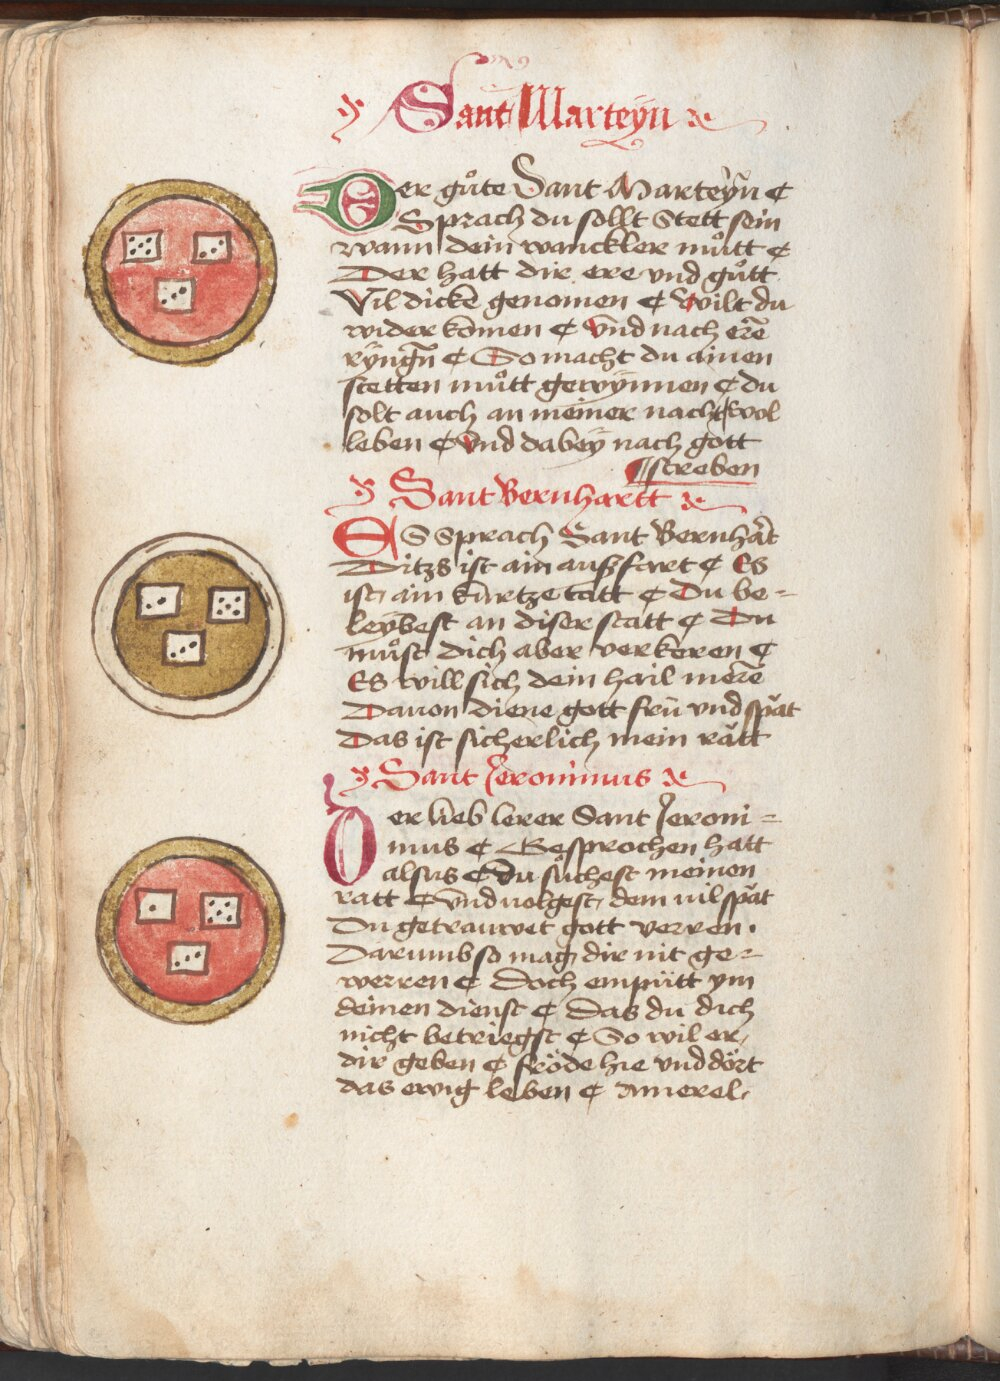 Sant Marteyn
Der gůte Sant Marteẏn ¢
Sprach du sollt Stett sein
wann dein wanckler můtt ¢
Der hatt dir ere vnd gůtt
Vil dicke genomen ¢ Wilt du
wider komen ¢ Vnd nach ere
ryngn ¢ So macht du ainen
stetten můtt gewẏnnen ¢ du
solt auch an meiner nacht wol
leben ¢ Vnd dabeẏ nach gott
streben
Sant Bernhartt
ES Sprach Sant Bernhart
Ditzs ist ain ausfart ¢ Es
ist ain kurtze tatt ¢ Du be=
leẏbest an diser statt ¢ Du
můst dich aber verkeren ¢
Es will sich dein hail mere
Dauon diene gott frü vnd spät
Das ist sicherlich mein rätt
Sant Jeronimus
Der lieb lerer Sant Jeroni=
mus ¢ Gesprochen hatt
alsus ¢ Du suchest meinen
ratt ¢ Vnd volgest dem vil spät
Du getrauwet gott verren.
Darumb so mag dir nit ge=
werren ¢ Doch empütt ym
deinen dienst ¢ Das du dich
nicht betriegst ¢ So wil er
dir geben ¢ fröde hie vnd dört
das ewig leben ¢ Amerel